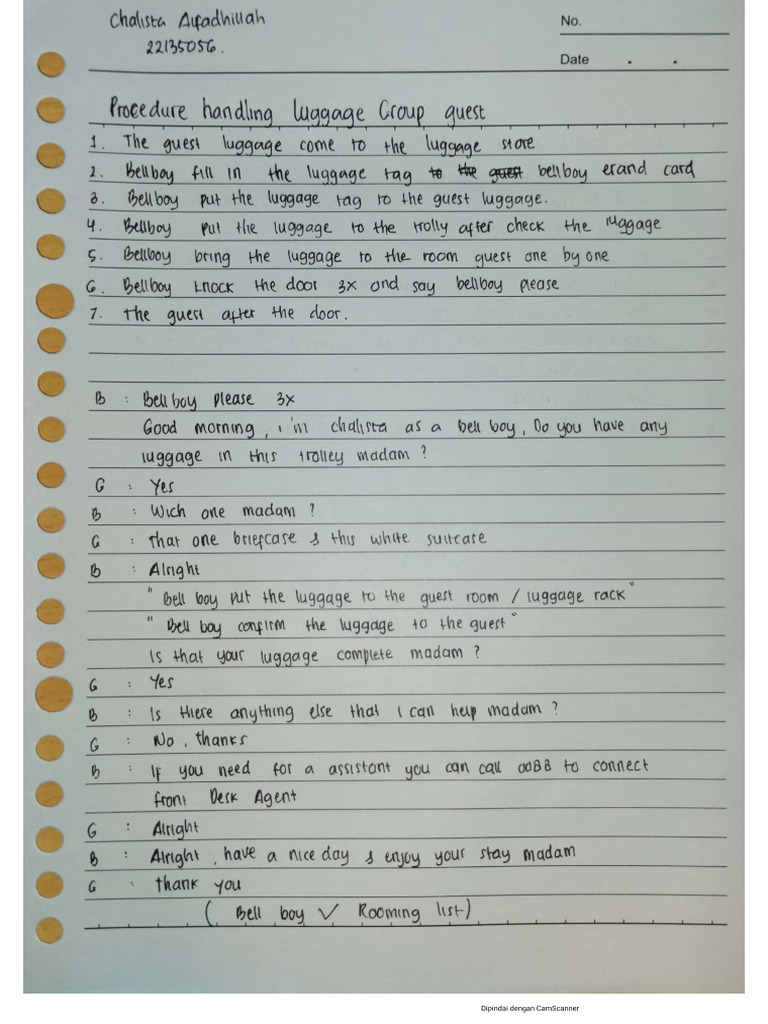 Chalista Alfadhillah
22135056.
No.
Date . .
Procedure handling luggage Group guest
1. The guest luggage come to the luggage store
2. Bellboy fill in the luggage tag to the guest bellboy erand card
3. Bellboy put the luggage tag to the guest luggage.
4. Bellboy put the luggage to the trolly after check the luggage
5. Bellboy bring the luggage to the room guest one by one
6. Bellboy knock the door 3x and say bellboy please
7. The guest after the door.
B : Bellboy please 3x
Good morning, i'm chalista as a bell boy, Do you have any
luggage in this trolley madam?
G : Yes
B : Wich one madam?
G : that one briefcase & this white suitcase
B : Alright
" Bell boy put the luggage to the guest room / luggage rack "
" Bell boy confirm the luggage to the guest "
Is that your luggage complete madam?
G : Yes
B : Is there anything else that i can help madam?
G : No, thanks
B : If you need for a assistant you can call 0088 to connect
front Desk Agent
G : Alright
B : Alright, have a nice day & enjoy your stay madam
G : thank you
( Bell boy ✓ Rooming list)
Dipindai dengan CamScanner